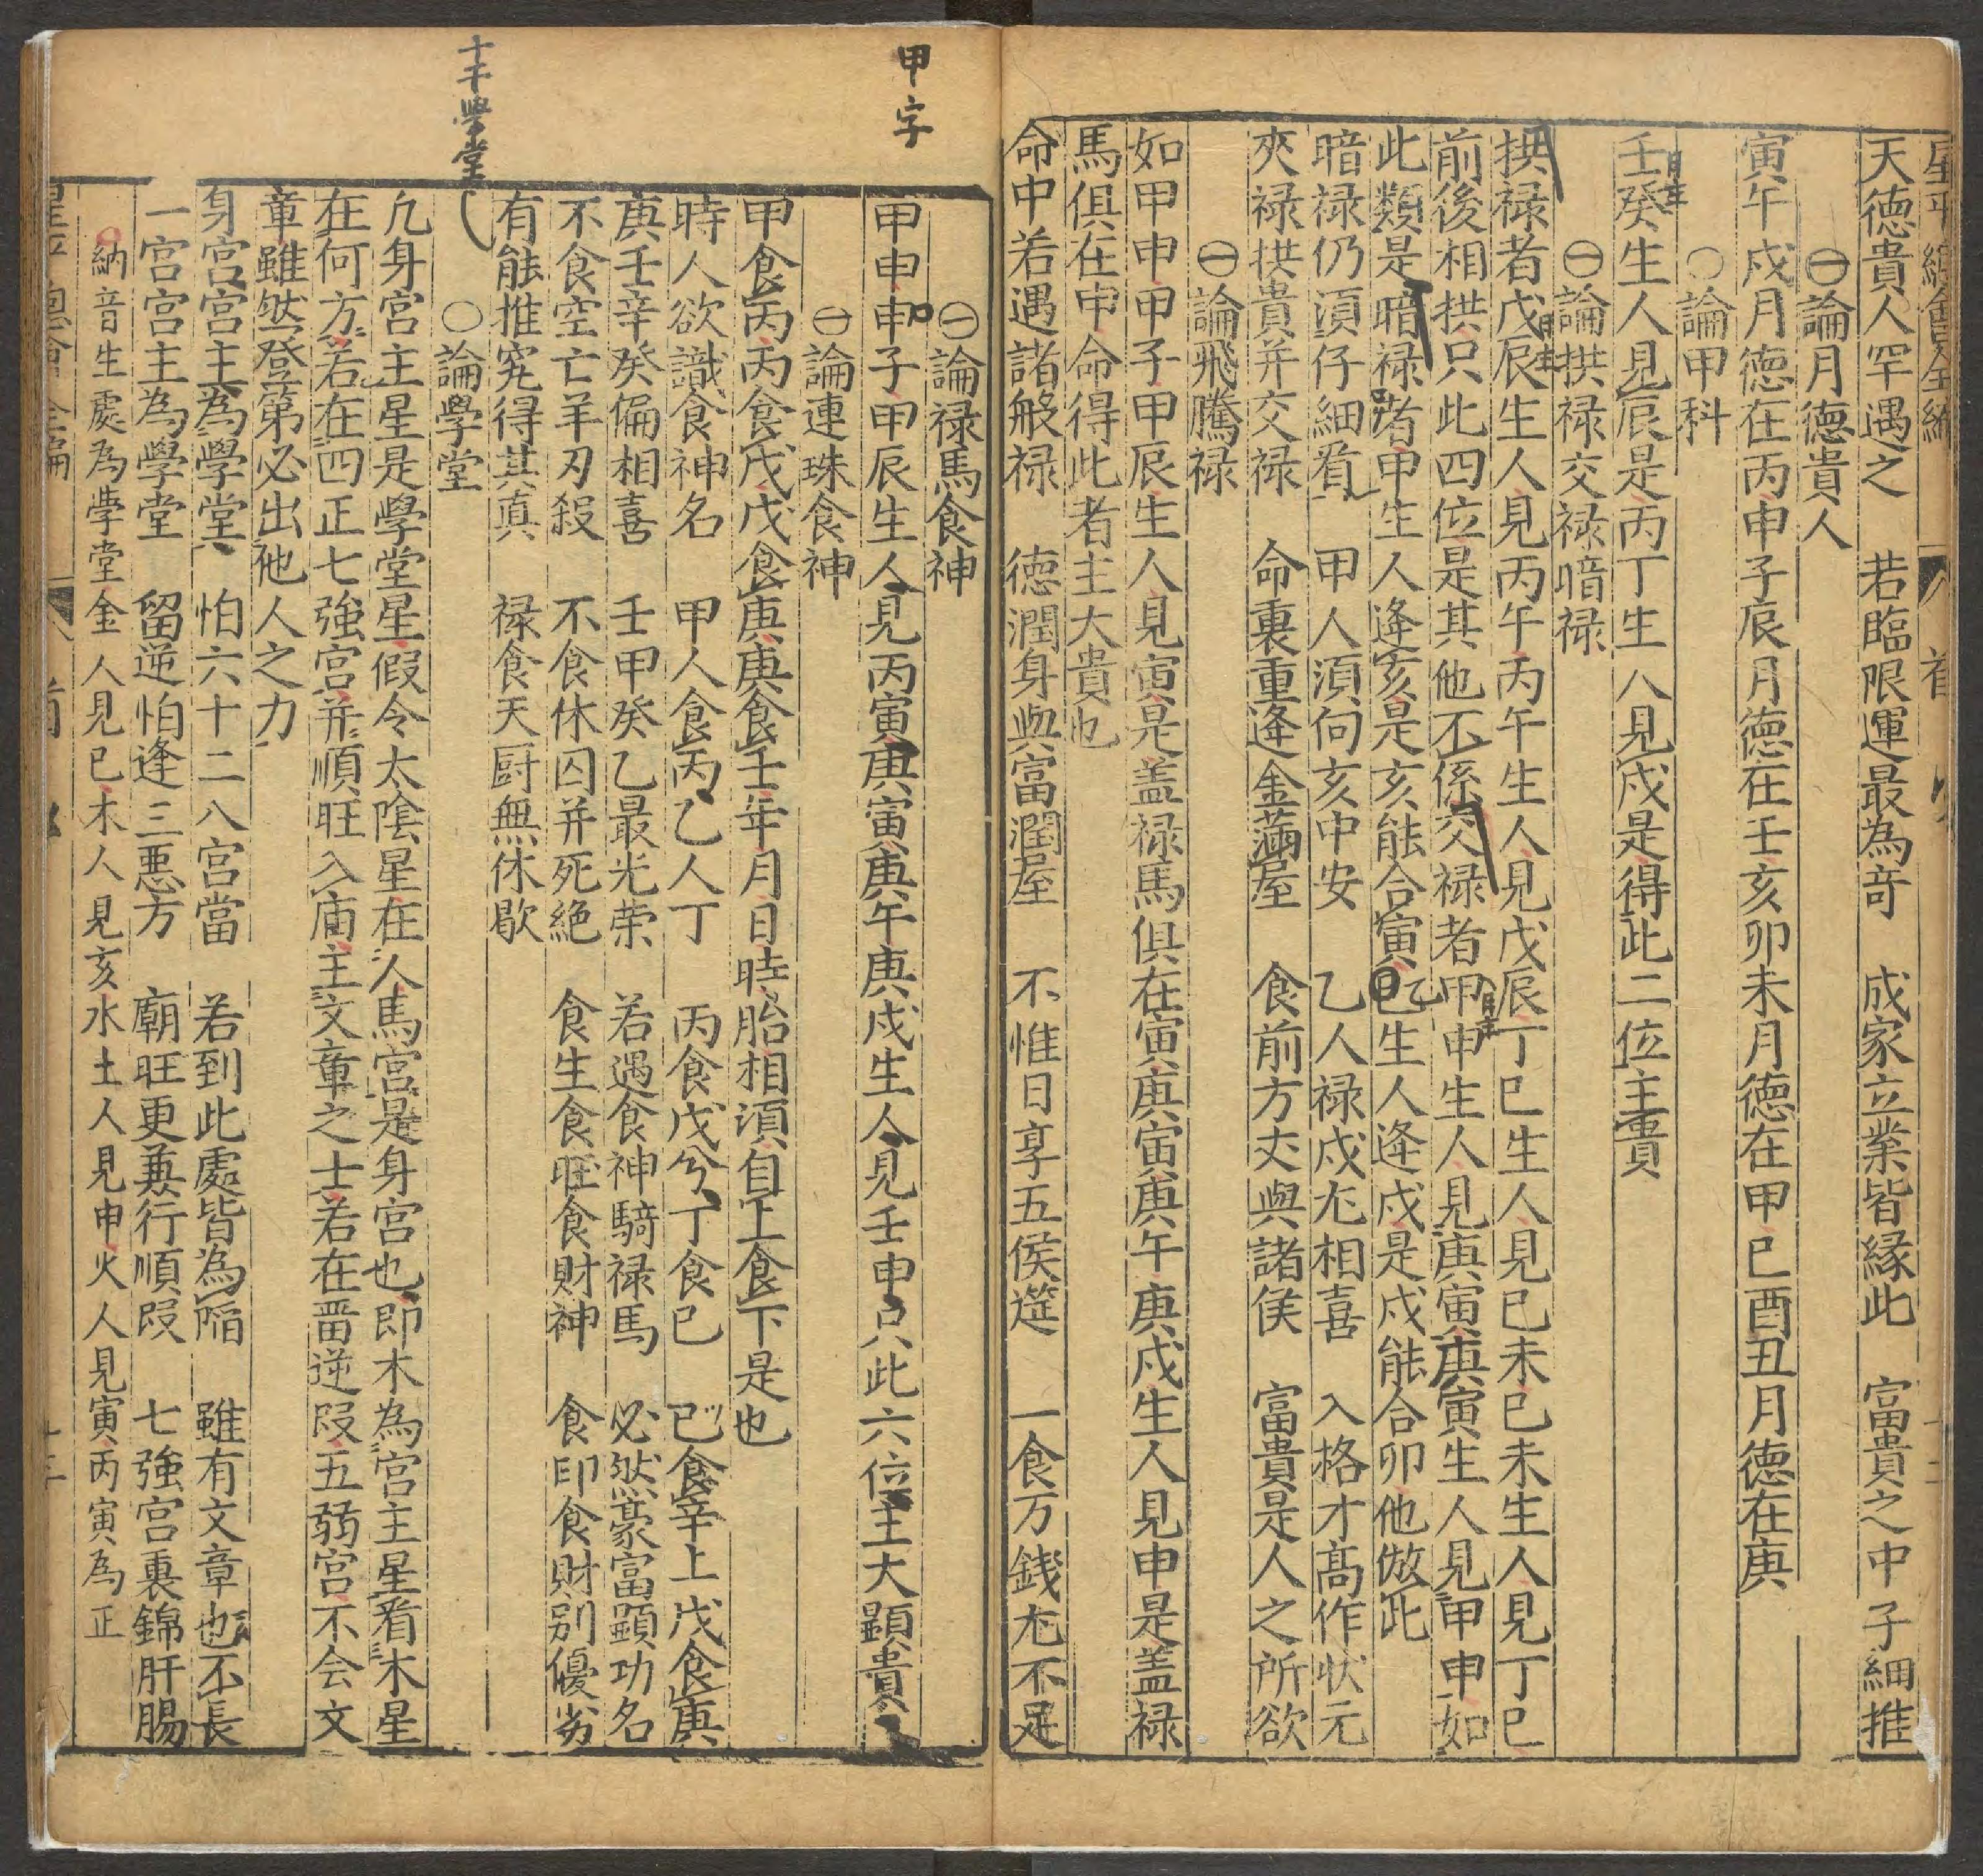 星平總會全編
天德貴人罕遇之　若臨限運最為竒　成家立業皆縁此　富貴之中子細推
㊀論月德貴人
寅午戍月德在丙申子辰月德在壬亥卯未月德在甲巳酉丑月德在庚
○論甲科
壬癸生人見辰是丙丁生八見戍是得此二位主貴
㊀論拱禄交禄暗禄
拱禄者戊辰生人見丙午丙午生人見戊辰丁巳生人見巳未巳未生人見丁巳
前後相拱只此四位是其他不係交禄者甲申生人見庚寅庚寅生人見甲申如
此類是暗禄者甲生人逢亥是亥能合寅乙生人逢戍是戍能合卯他倣此
暗禄仍須仔細看　甲人須向亥中安　乙人禄戍尤相喜　入格才髙作状元
夾禄拱貴并交禄　命裏重逢金滿屋　食前方丈與諸侯　富貴是人之所欲
㊀論飛騰禄
如甲申甲子甲辰生人見寅是盖禄馬俱在寅庚寅庚午庚戍生人見申是盖禄
馬俱在申命得此者主大貴也
命中若遇諸般禄　德潤身與富潤屋　不惟日享五侯筵　一食万錢尤不足
甲字
㊀論禄馬食神
甲申甲子甲辰生人見丙寅庚寅庚午庚戍生人見壬申只此六位主大顕貴
㊀論連珠食神
甲食丙丙食戊戊食庚庚食壬年月日時胎相須自上食下是也
時人欲識食神名　甲人食丙乙人丁　丙食戊兮丁食巳　巳食辛上戊食庚
庚壬辛癸偏相喜　壬甲癸乙最光荣　若遇食神騎禄馬　必然豪富顕功名
不食空亡羊刃殺　不食休囚并死絶　食生食旺食財神　食印食財别優劣
有能推究得其真　禄食天厨無休歇
十干學堂
○論學堂
凢身宮主星是學堂星假令太陰星在人馬宮是身宮也即木為宮主星看木星
在何方若在四正七強宮并順旺入庙主文章之士若在畱逆叚五弱宮不会文
章雖然登第必出他人之力
身宮宮主為學堂　怕六十二八宮當　若到此處皆為陷　雖有文章也不長
一宮宮主為學堂　留逆怕逢三惡方　廟旺更兼行順叚　七強宮裏錦肝腸
納音生處為學堂金人見巳木人見亥水土人見申火人見寅丙寅為正